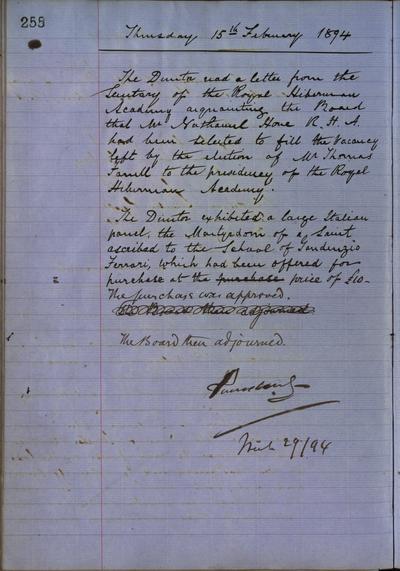 258
Thursday 15th February 1894
The Director read a letter from the
Secretary of the Royal Hibernian
Academy acquainting the Board
that Mr Nathaniel Hone R.H.A.
had been selected to fill the Vacancy
left by the election of Mr Thomas
Farrell to the presidency of the Royal
Hibernian Academy.
The Director exhibited a large Italian
panel, the Martyrdom of a Saint,
ascribed to the School of Gaudenzio
Ferrari, which had been offered for
purchase at the purchase price of £10-
The purchase was approved.
The Board then adjourned
The Board then adjourned.
29/94